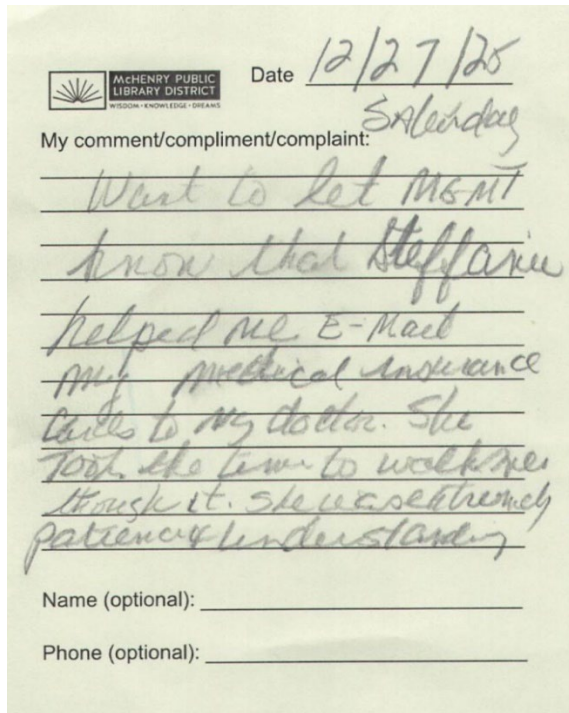 McHENRY PUBLIC
LIBRARY DISTRICT
WISDOM • KNOWLEDGE • DREAMS
Date 12/27/25
Saturday
My comment/compliment/complaint:
Want to let MGMT
know that Steffanie
helped me E-Mail
my medical insurance
Cards to my doctor. She
Took the time to walk me
though it. She was extremely
patience & Understanding
Name (optional):
Phone (optional):